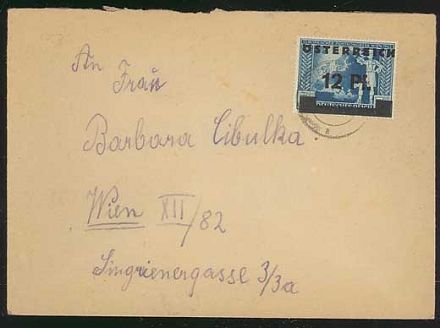 ÖSTERREICH
12 Pf.
An
Frau
Barbara Cibulka
Wien XII/82
Singrienergasse 3/3a